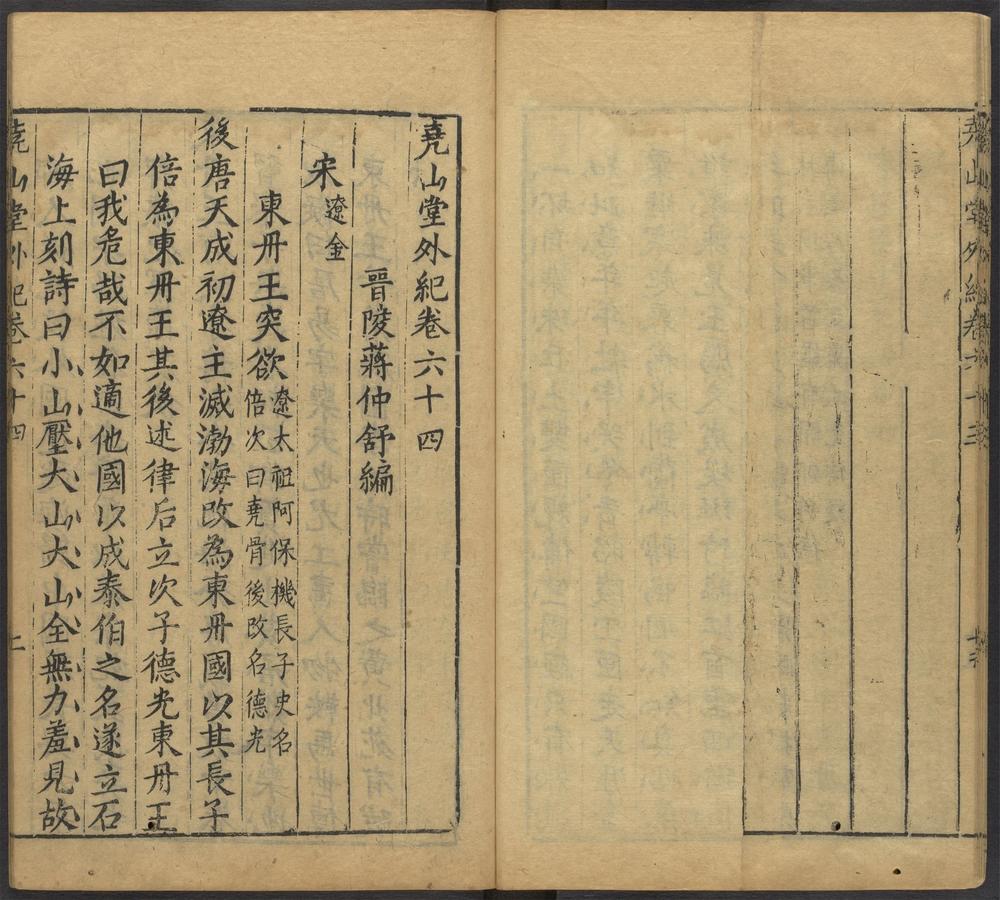 堯山堂外紀卷六十四
晉陵蔣仲舒編
宋遼金
東丹王突欲遼太祖阿保機長子史名
倍次曰堯骨後改名德光
後唐天成初遼主滅渤海改為東丹國以其長子
倍為東丹王其後述律后立次子德光東丹王
曰我危哉不如適他國以成泰伯之名遂立石
海上刻詩曰小山壓大山大山全無力羞見故
堯山堂外紀卷六十四